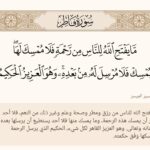 سورة فاطر
مَا يَفْتَحِ اللَّهُ لِلنَّاسِ مِن رَّحْمَةٍ فَلَا مُمْسِكَ لَهَا
وَمَا يُمْسِكْ فَلَا مُرْسِلَ لَهُ مِن بَعْدِهِ وَهُوَ الْعَزِيزُ الْحَكِيمُ
الله للناس من رزق ومطر وصحة وعلم وغير ذلك من النعم، فلا أحد
أن يمسك هذه الرحمة، وما يمسك منها فلا أحد يستطيع أن يرسلها بعده
وتعالى. وهو العزيز القاهر لكل شيء، الحكيم الذي يرسل الرحمة
وفق حكمته.